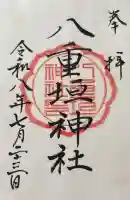 奉拝
八重垣神社
令和八年七月二十三日